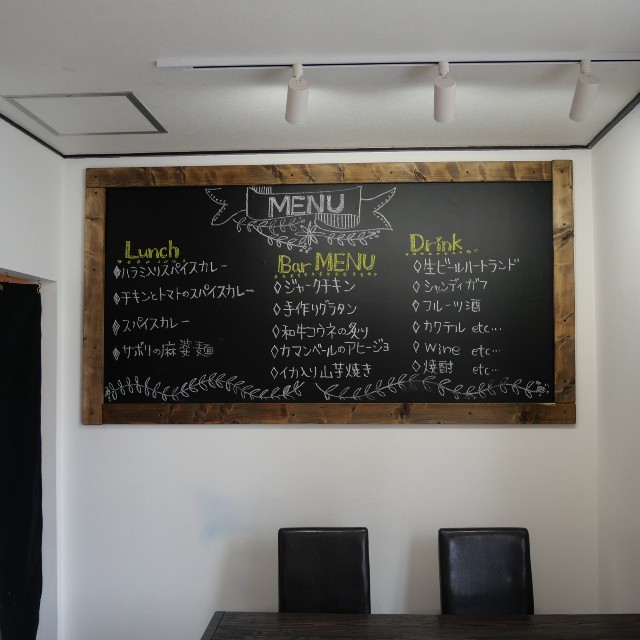 MENU
Lunch
ハラミ入りスパイスカレー
チキンとトマトのスパイスカレー
スパイスカレー
サボリの麻婆麺
Bar MENU
ジャークチキン
手作りグラタン
和牛コウネの炙り
カマンベールのアヒージョ
イカ入り山芋焼き
Drink
生ビールハートランド
シャンディガフ
フルーツ酒
カクテル etc…
wine etc…
焼酎 etc…